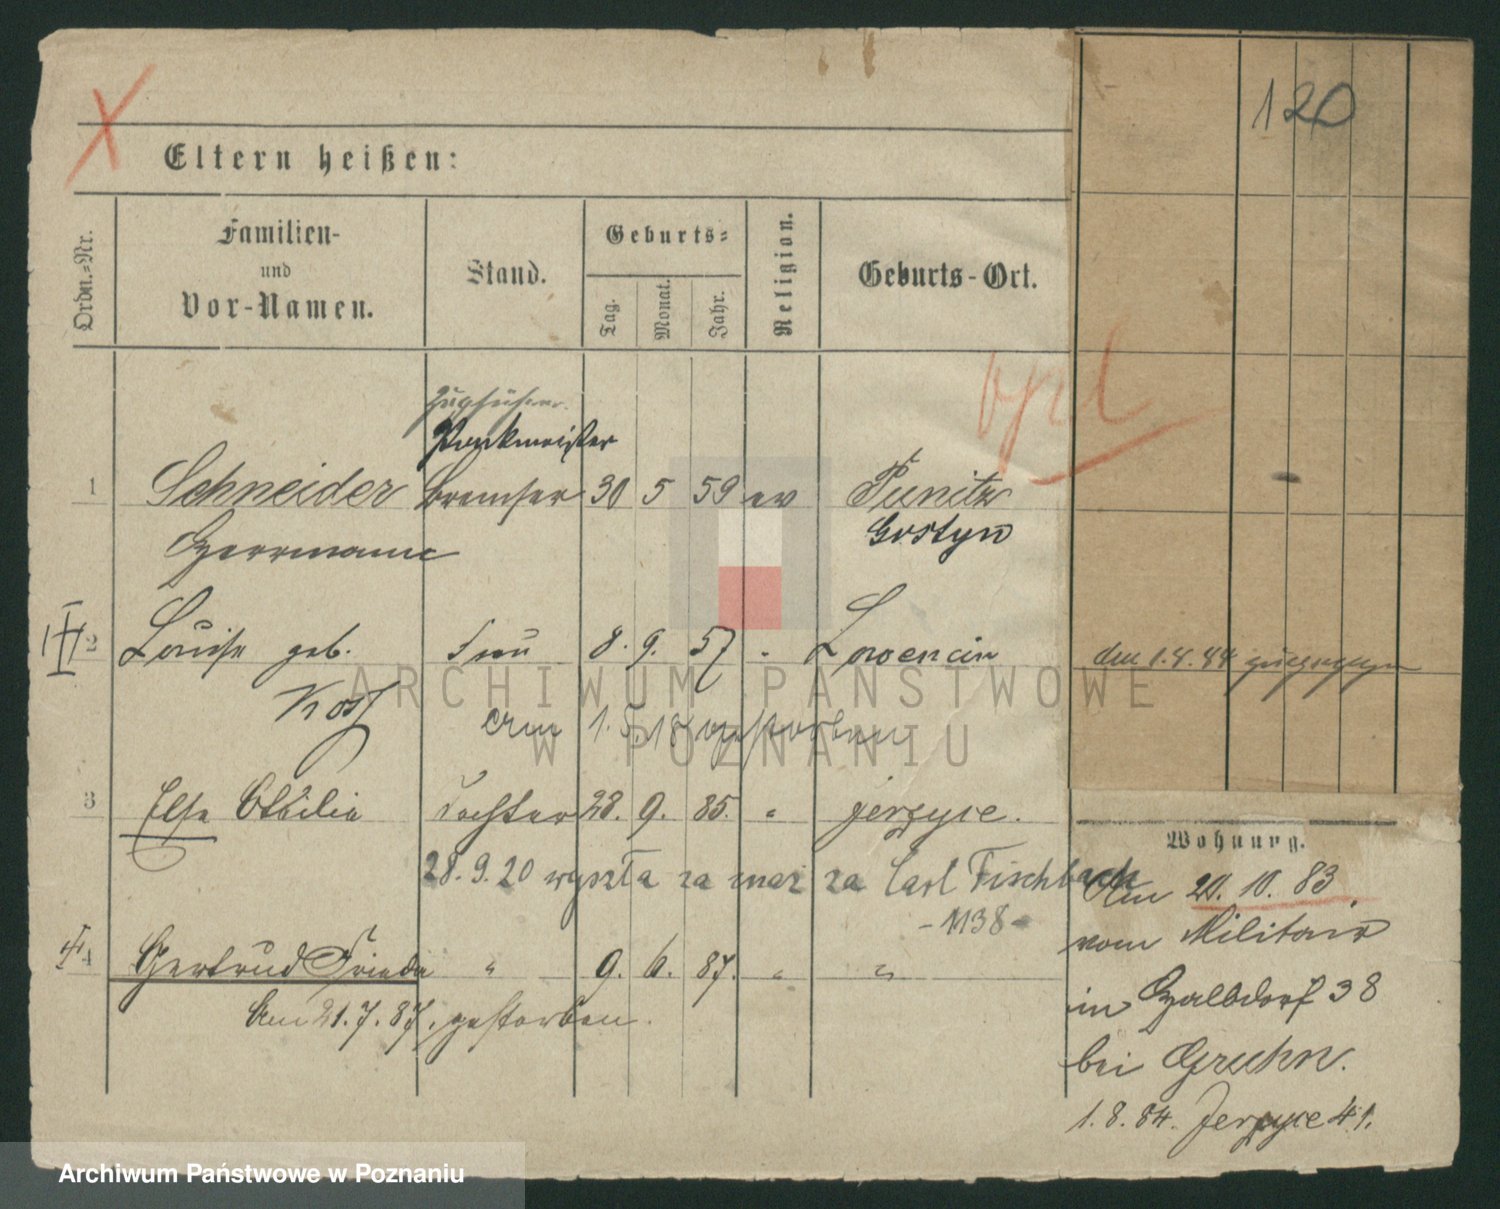 120
Eltern heißen:
Ordn.-Nr.
Familien-
und
Vor-Namen.
Stand.
Geburts-
Tag.
Monat.
Jahr.
Religion.
Geburts-Ort.
Zugführer.
Packmeister
1 Schneider Bremser 30 5 59 ev Punitz
Herrmann Gostyn
2 Louise geb. Frau 8. 9. 57 Lowencin
den 1.8.84 zugezogen
am 1.5.18 verstorben
3 Else Ottilie Tochter 28. 9. 85. " Jerzyce.
28.9.20 wyszła za mąż za Carl Fischbach
-1138-
4 Gertrud Frieda " 9. 6. 87. " "
Am 21.7.87. gestorben.
Wohnung.
Am 20. 10. 83.
vom Militair
in 38
bei Gruhn.
1.8.84. Jerzyce 41.
ARCHIWUM PAŃSTWOWE
W POZNANIU
Archiwum Państwowe w Poznaniu